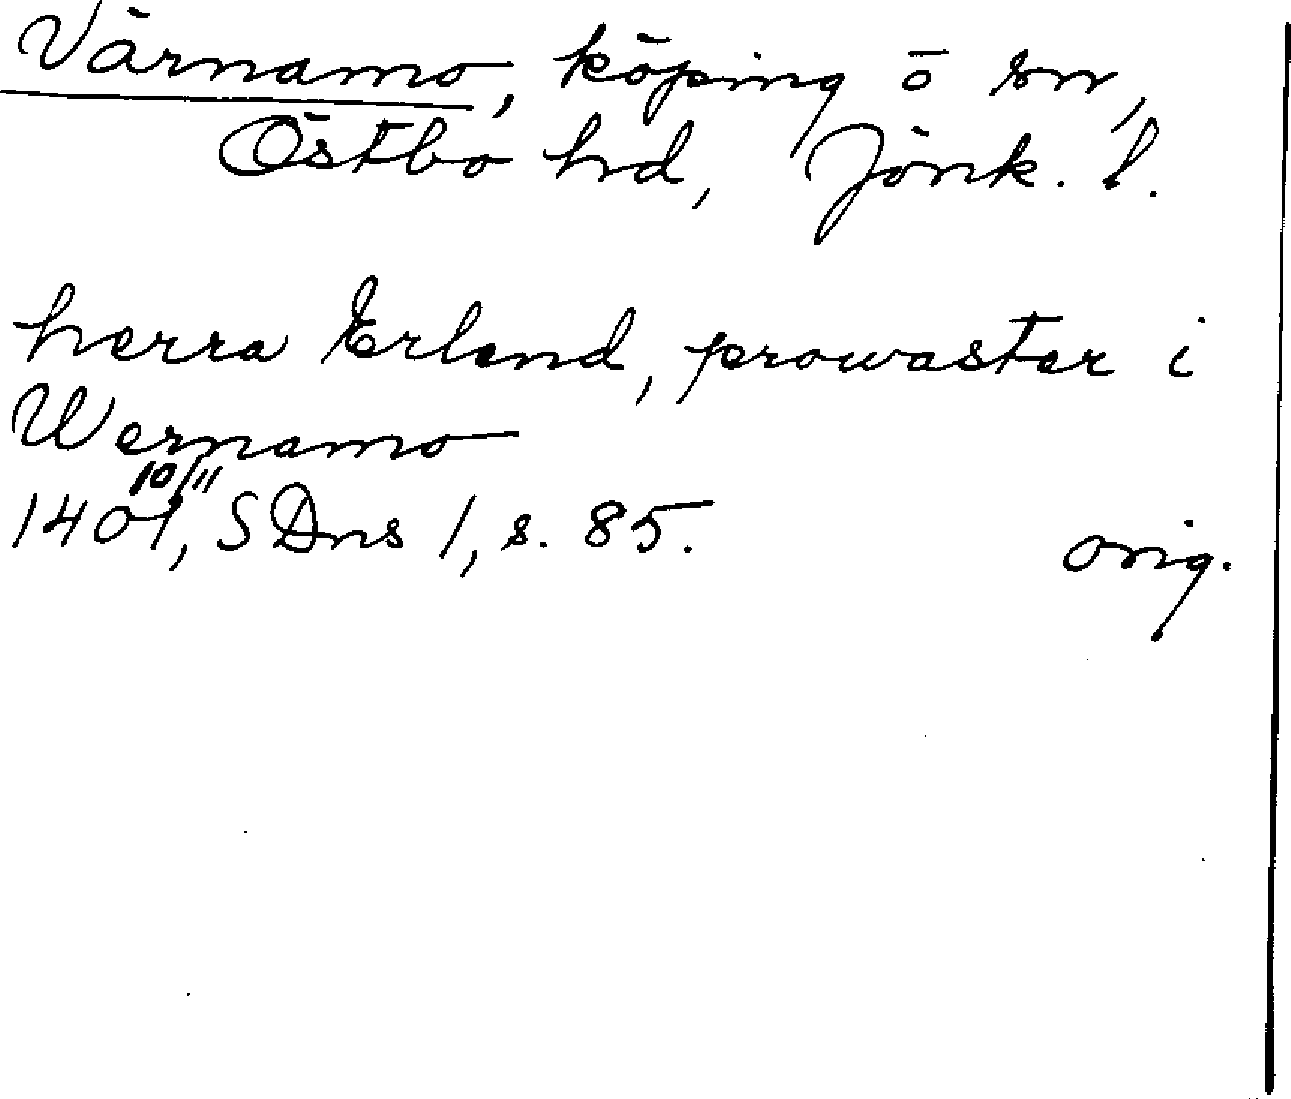 Värnamo, köping o sn,
Östbo hd, Jönk. l.
herra Erland, prowaster i
Wernamo
10/11
1401, SDns 1, s. 85. orig.